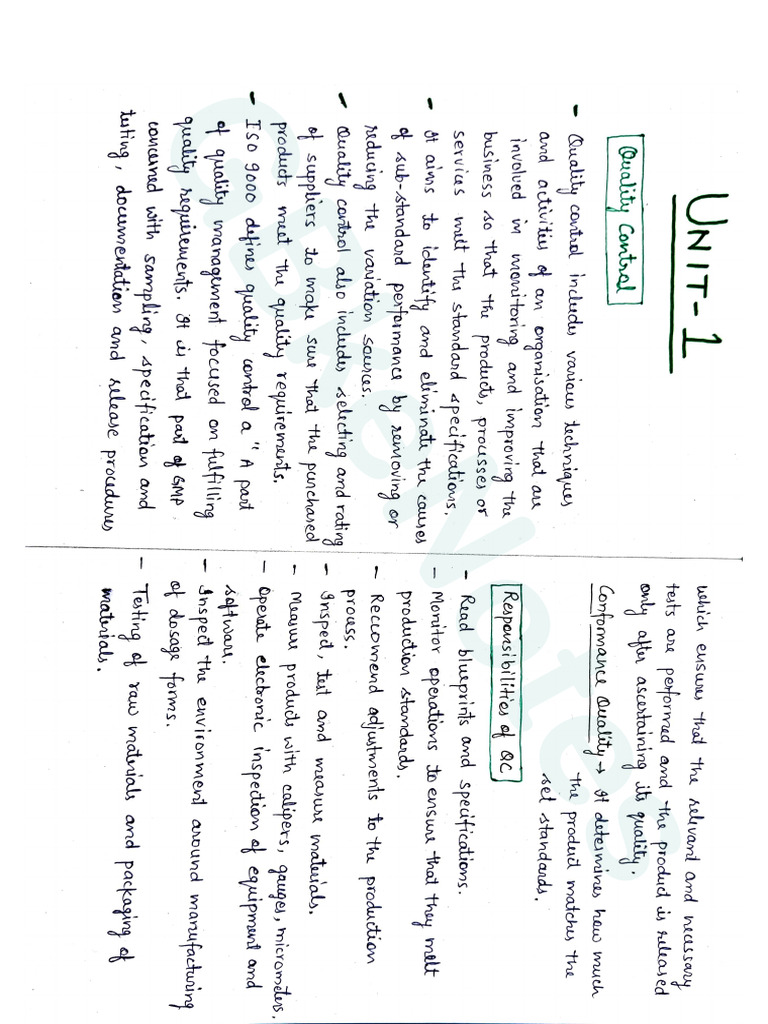 UNIT-1
Quality Control
- Quality control includes various techniques
and activities of an organisation that are
involved in monitoring and improving the
business so that the products, processes or
services meet the standard specifications.
- It aims to identify and eliminate the causes
of sub-standard performance by removing or
reducing the variation sources.
- Quality control also includes selecting and rating
of suppliers to make sure that the purchased
products meet the quality requirements.
- ISO 9000 defines quality control a "A part
of quality management focused on fulfilling
quality requirements. It is that part of GMP
concerned with sampling, specification and
testing, documentation and release procedures
which ensures that the relevant and necessary
tests are performed and the product is released
only after ascertaining its quality.
Conformance Quality → It determines how much
the product matches the
set standards.
Responsibilities of QC
- Read blueprints and specifications.
- Monitor operations to ensure that they meet
production standards.
- Reccomend adjustments to the production
process.
- Inspect, test and measure materials.
- Measure products with calipers, gauges, micrometers.
- Operate electronic inspection of equipment and
software.
- Inspect the environment around manufacturing
of dosage forms.
- Testing of raw materials and packaging of
materials.